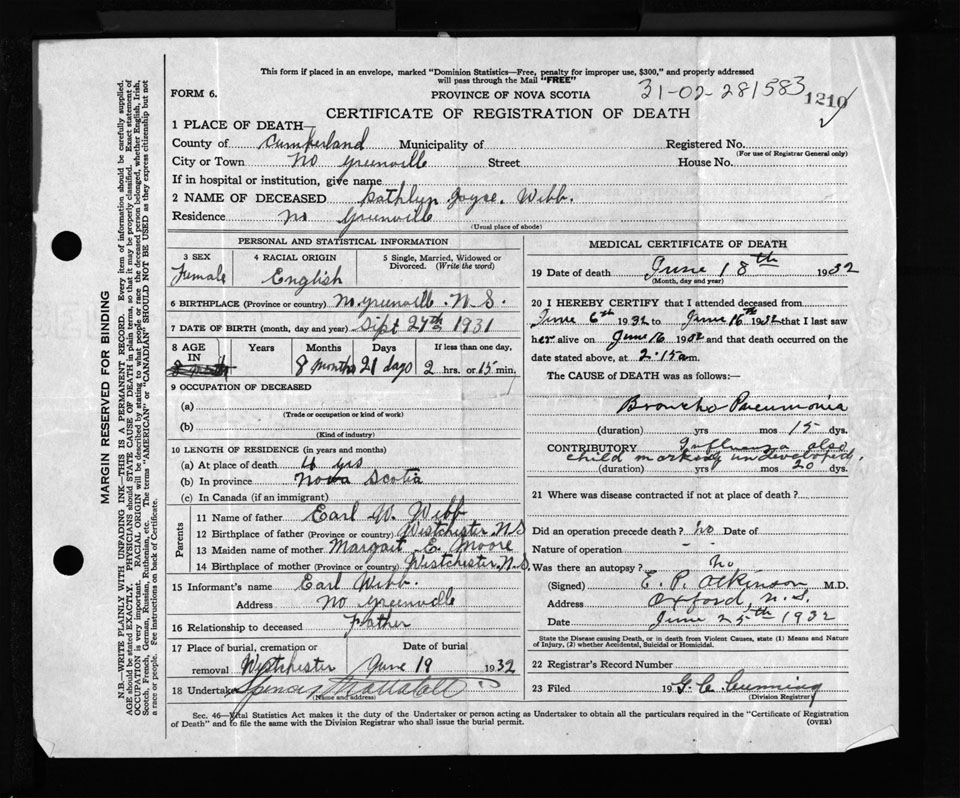 This form if placed in an envelope, marked "Dominion Statistics—Free, penalty for improper use, $300," and properly addressed
will pass through the Mail "FREE"
FORM 6. PROVINCE OF NOVA SCOTIA 31-02-281583 1210
CERTIFICATE OF REGISTRATION OF DEATH
1 PLACE OF DEATH—
County of Cumberland Municipality of Registered No.
(For use of Registrar General only)
City or Town No Greenville Street House No.
If in hospital or institution, give name
2 NAME OF DECEASED Kathlyn Joyce. Webb.
Residence No Greenville
(Usual place of abode)
PERSONAL AND STATISTICAL INFORMATION
3 SEX 4 RACIAL ORIGIN 5 Single, Married, Widowed or
Divorced. (Write the word)
Female English
6 BIRTHPLACE (Province or country) No Greenville. N.S.
7 DATE OF BIRTH (month, day and year) Sept 27th 1931
8 AGE Years Months Days If less than one day,
IN
8 Months 21 days 2 hrs. or 15 min.
9 OCCUPATION OF DECEASED
(a)
(Trade or occupation or kind of work)
(b)
(Kind of industry)
10 LENGTH OF RESIDENCE (in years and months)
(a) At place of death yrs
(b) In province Nova Scotia
(c) In Canada (if an immigrant)
Parents
11 Name of father Earl W. Webb
12 Birthplace of father (Province or country) Westchester N.S
13 Maiden name of mother Margait E. Moore
14 Birthplace of mother (Province or country) Westchester N.S.
15 Informant's name Earl Webb.
Address No Greenville
16 Relationship to deceased Father
17 Place of burial, cremation or Date of burial
removal Westchester June 19 1932
18 Undertaker Spencer
(Name and address)
MEDICAL CERTIFICATE OF DEATH
19 Date of death June 18th 1932
(Month, day and year)
20 I HEREBY CERTIFY that I attended deceased from
June 6th 1932 to June 16th 1932 that I last saw
her alive on June 16 1932 and that death occurred on the
date stated above, at 2.15 am.
The CAUSE of DEATH was as follows:—
Broncho Pneumonia
(duration) yrs mos 15 dys.
CONTRIBUTORY Influenza also
child markedly undeveloped.
(duration) yrs mos 20 dys.
21 Where was disease contracted if not at place of death?
Did an operation precede death? No Date of
Nature of operation -
Was there an autopsy? No
(Signed) E. P. Atkinson M.D.
Address Oxford, N.S.
Date June 25th 1932
State the Disease causing Death, or in death from Violent Causes, state (1) Means and Nature
of Injury, (2) whether Accidental, Suicidal or Homicidal.
22 Registrar's Record Number
23 Filed 19 G. C. Cunning
(Division Registrar)
Sec. 46—Vital Statistics Act makes it the duty of the Undertaker or person acting as Undertaker to obtain all the particulars required in the "Certificate of Registration
of Death" and to file the same with the Division Registrar who shall issue the burial permit. (OVER)
MARGIN RESERVED FOR BINDING
N.B.—WRITE PLAINLY WITH UNFADING INK—THIS IS A PERMANENT RECORD. Every item of information should be carefully supplied.
AGE should be stated EXACTLY. PHYSICIANS should STATE CAUSE OF DEATH in plain terms, so that it may be properly classified. Exact statement of
OCCUPATION is very important. RACIAL ORIGIN will be described by stating to what people or race the deceased person belonged, whether English, Irish,
Scotch, French, German, Russian, Ruthenian, etc. The terms "AMERICAN" or "CANADIAN" SHOULD NOT BE USED as they express citizenship but not
a race or people. Fee instructions on back of Certificate.